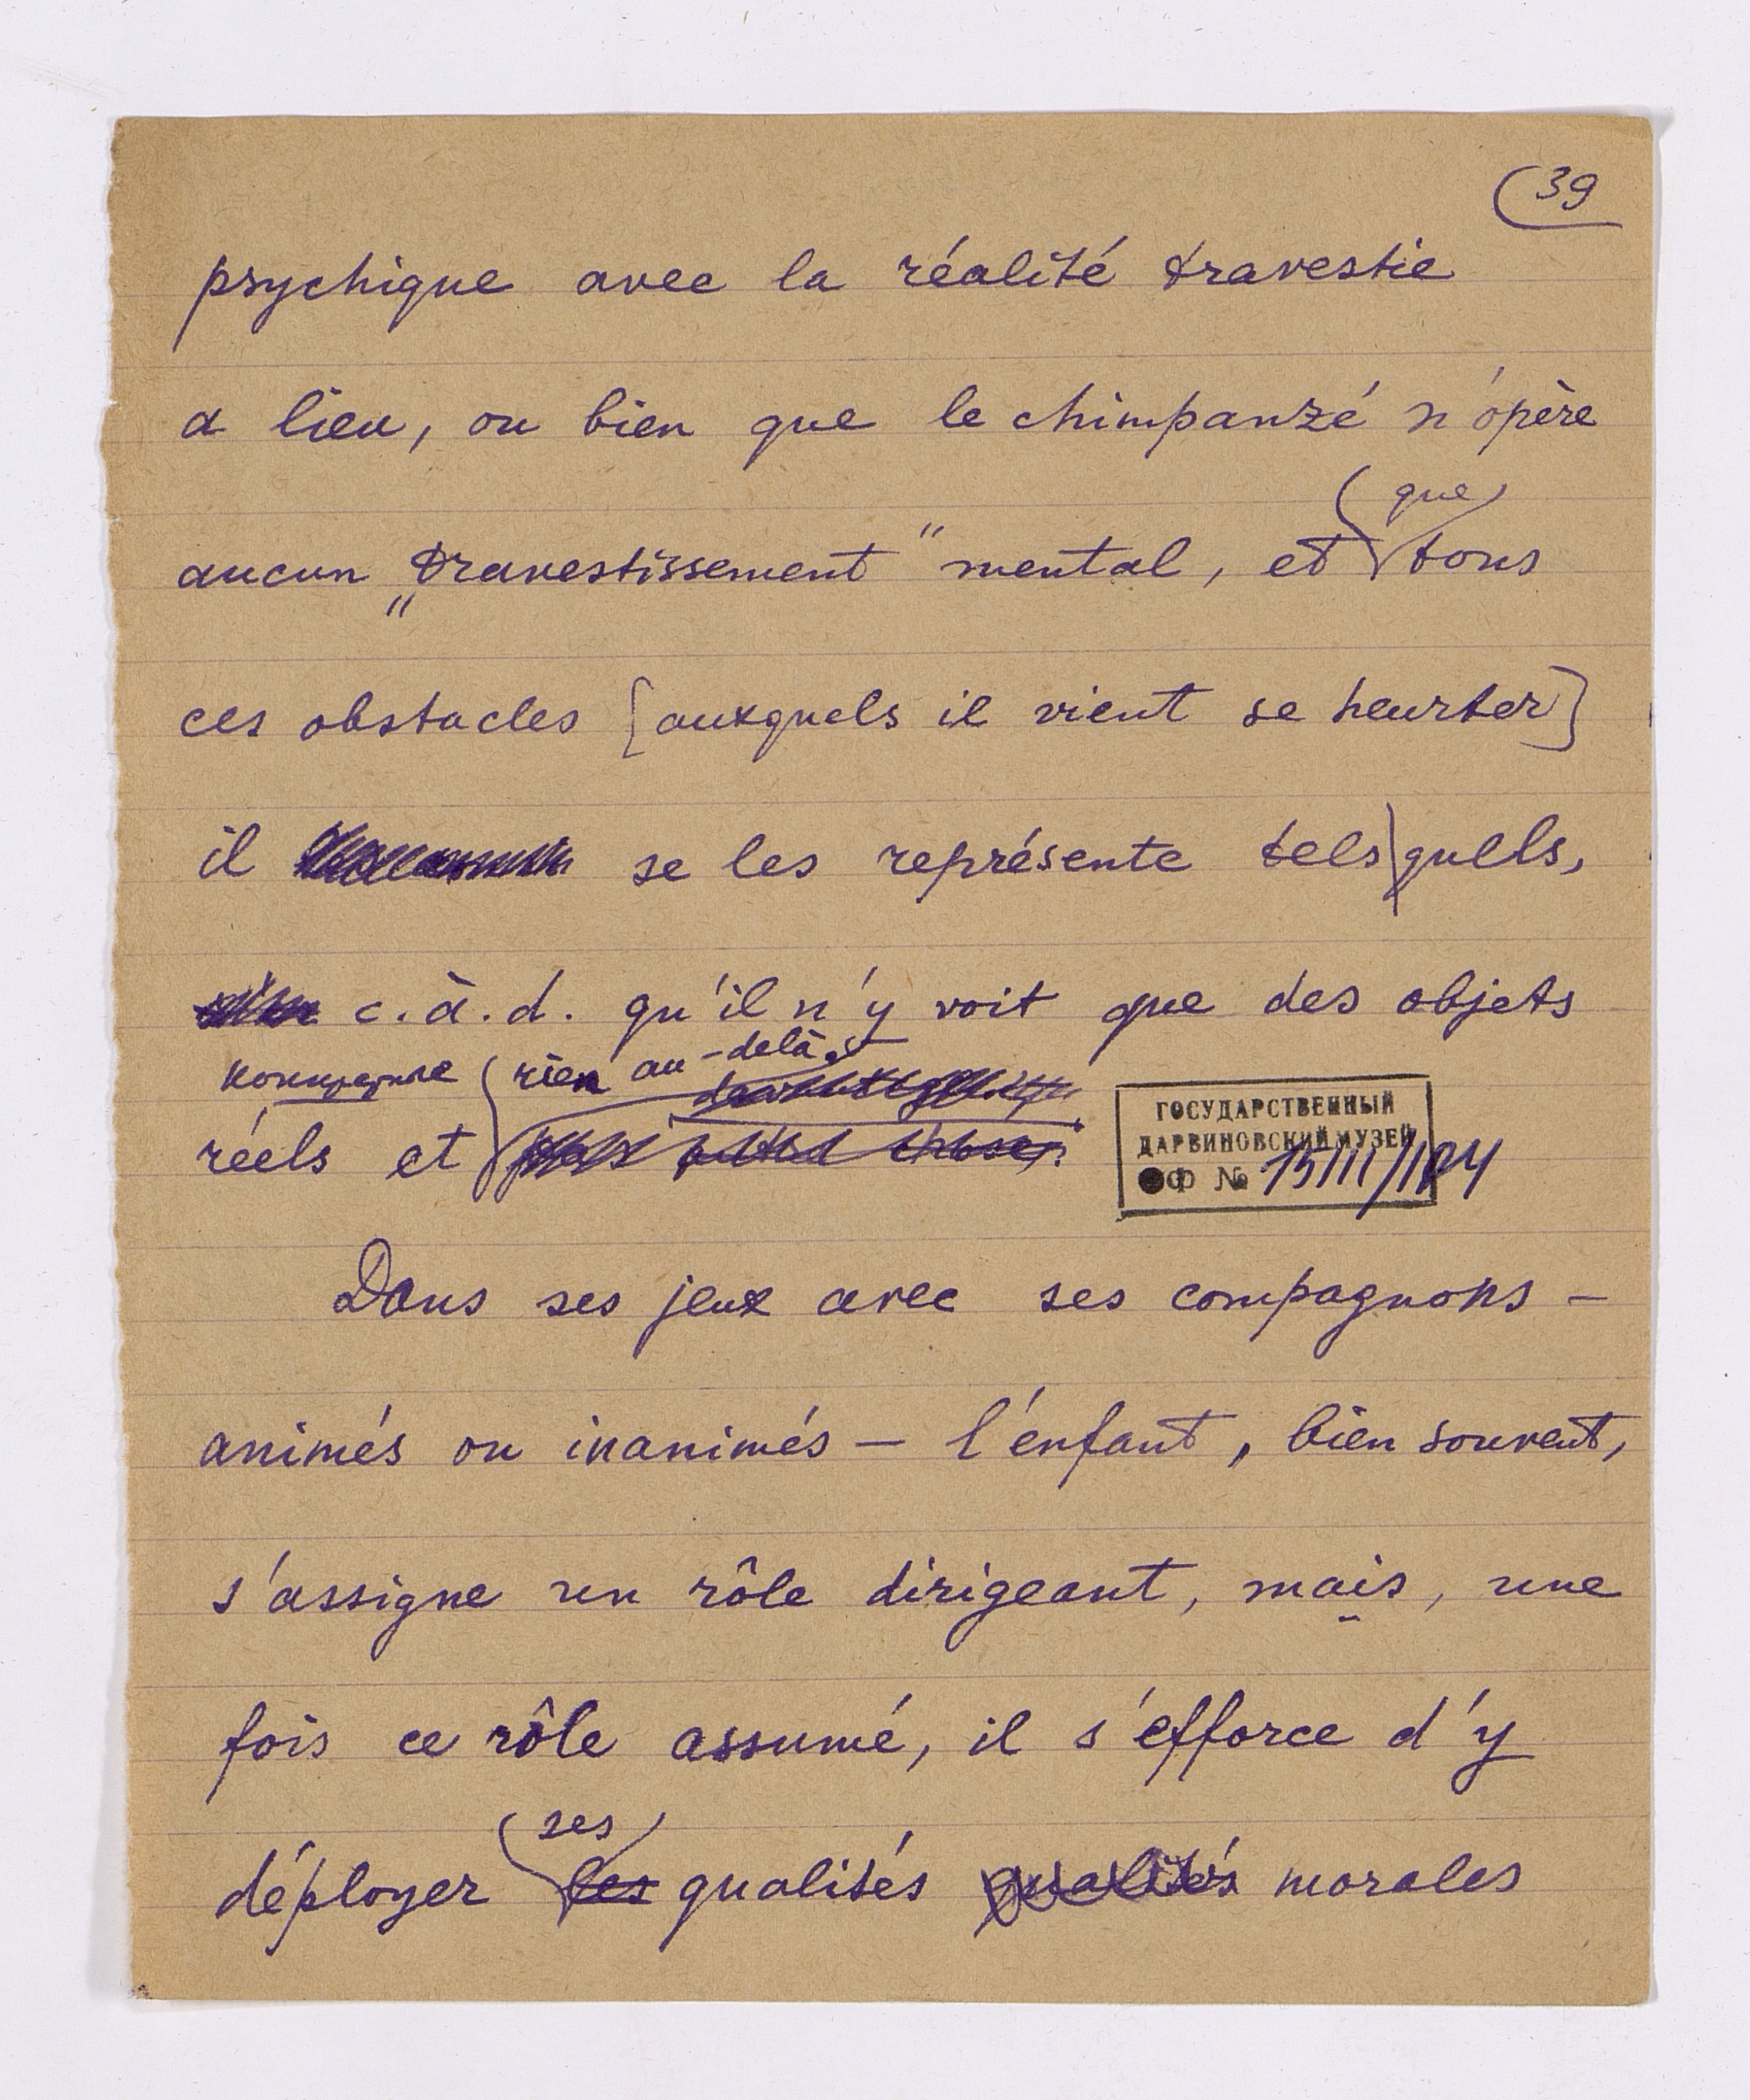 39
psychique avec la réalité travestie
a lieu, ou bien que le chimpanzé n'opère
que
aucun „travestissement" mental, et tous
ces obstacles [auxquels il vient se heurter]
il se les représente tels quells,
c.à.d. qu'il n'y voit que des objets
конкретные rien au-delà.
réels et autre chose.
ГОСУДАРСТВЕННЫЙ
ДАРВИНОВСКИЙ МУЗЕЙ
ОФ №
Dans ses jeux avec ses compagnons –
animés ou inanimés – l'enfant, bien souvent,
s'assigne un rôle dirigeant, mais, une
fois ce rôle assumé, il s'efforce d'y
ses
déployer les qualités qualités morales